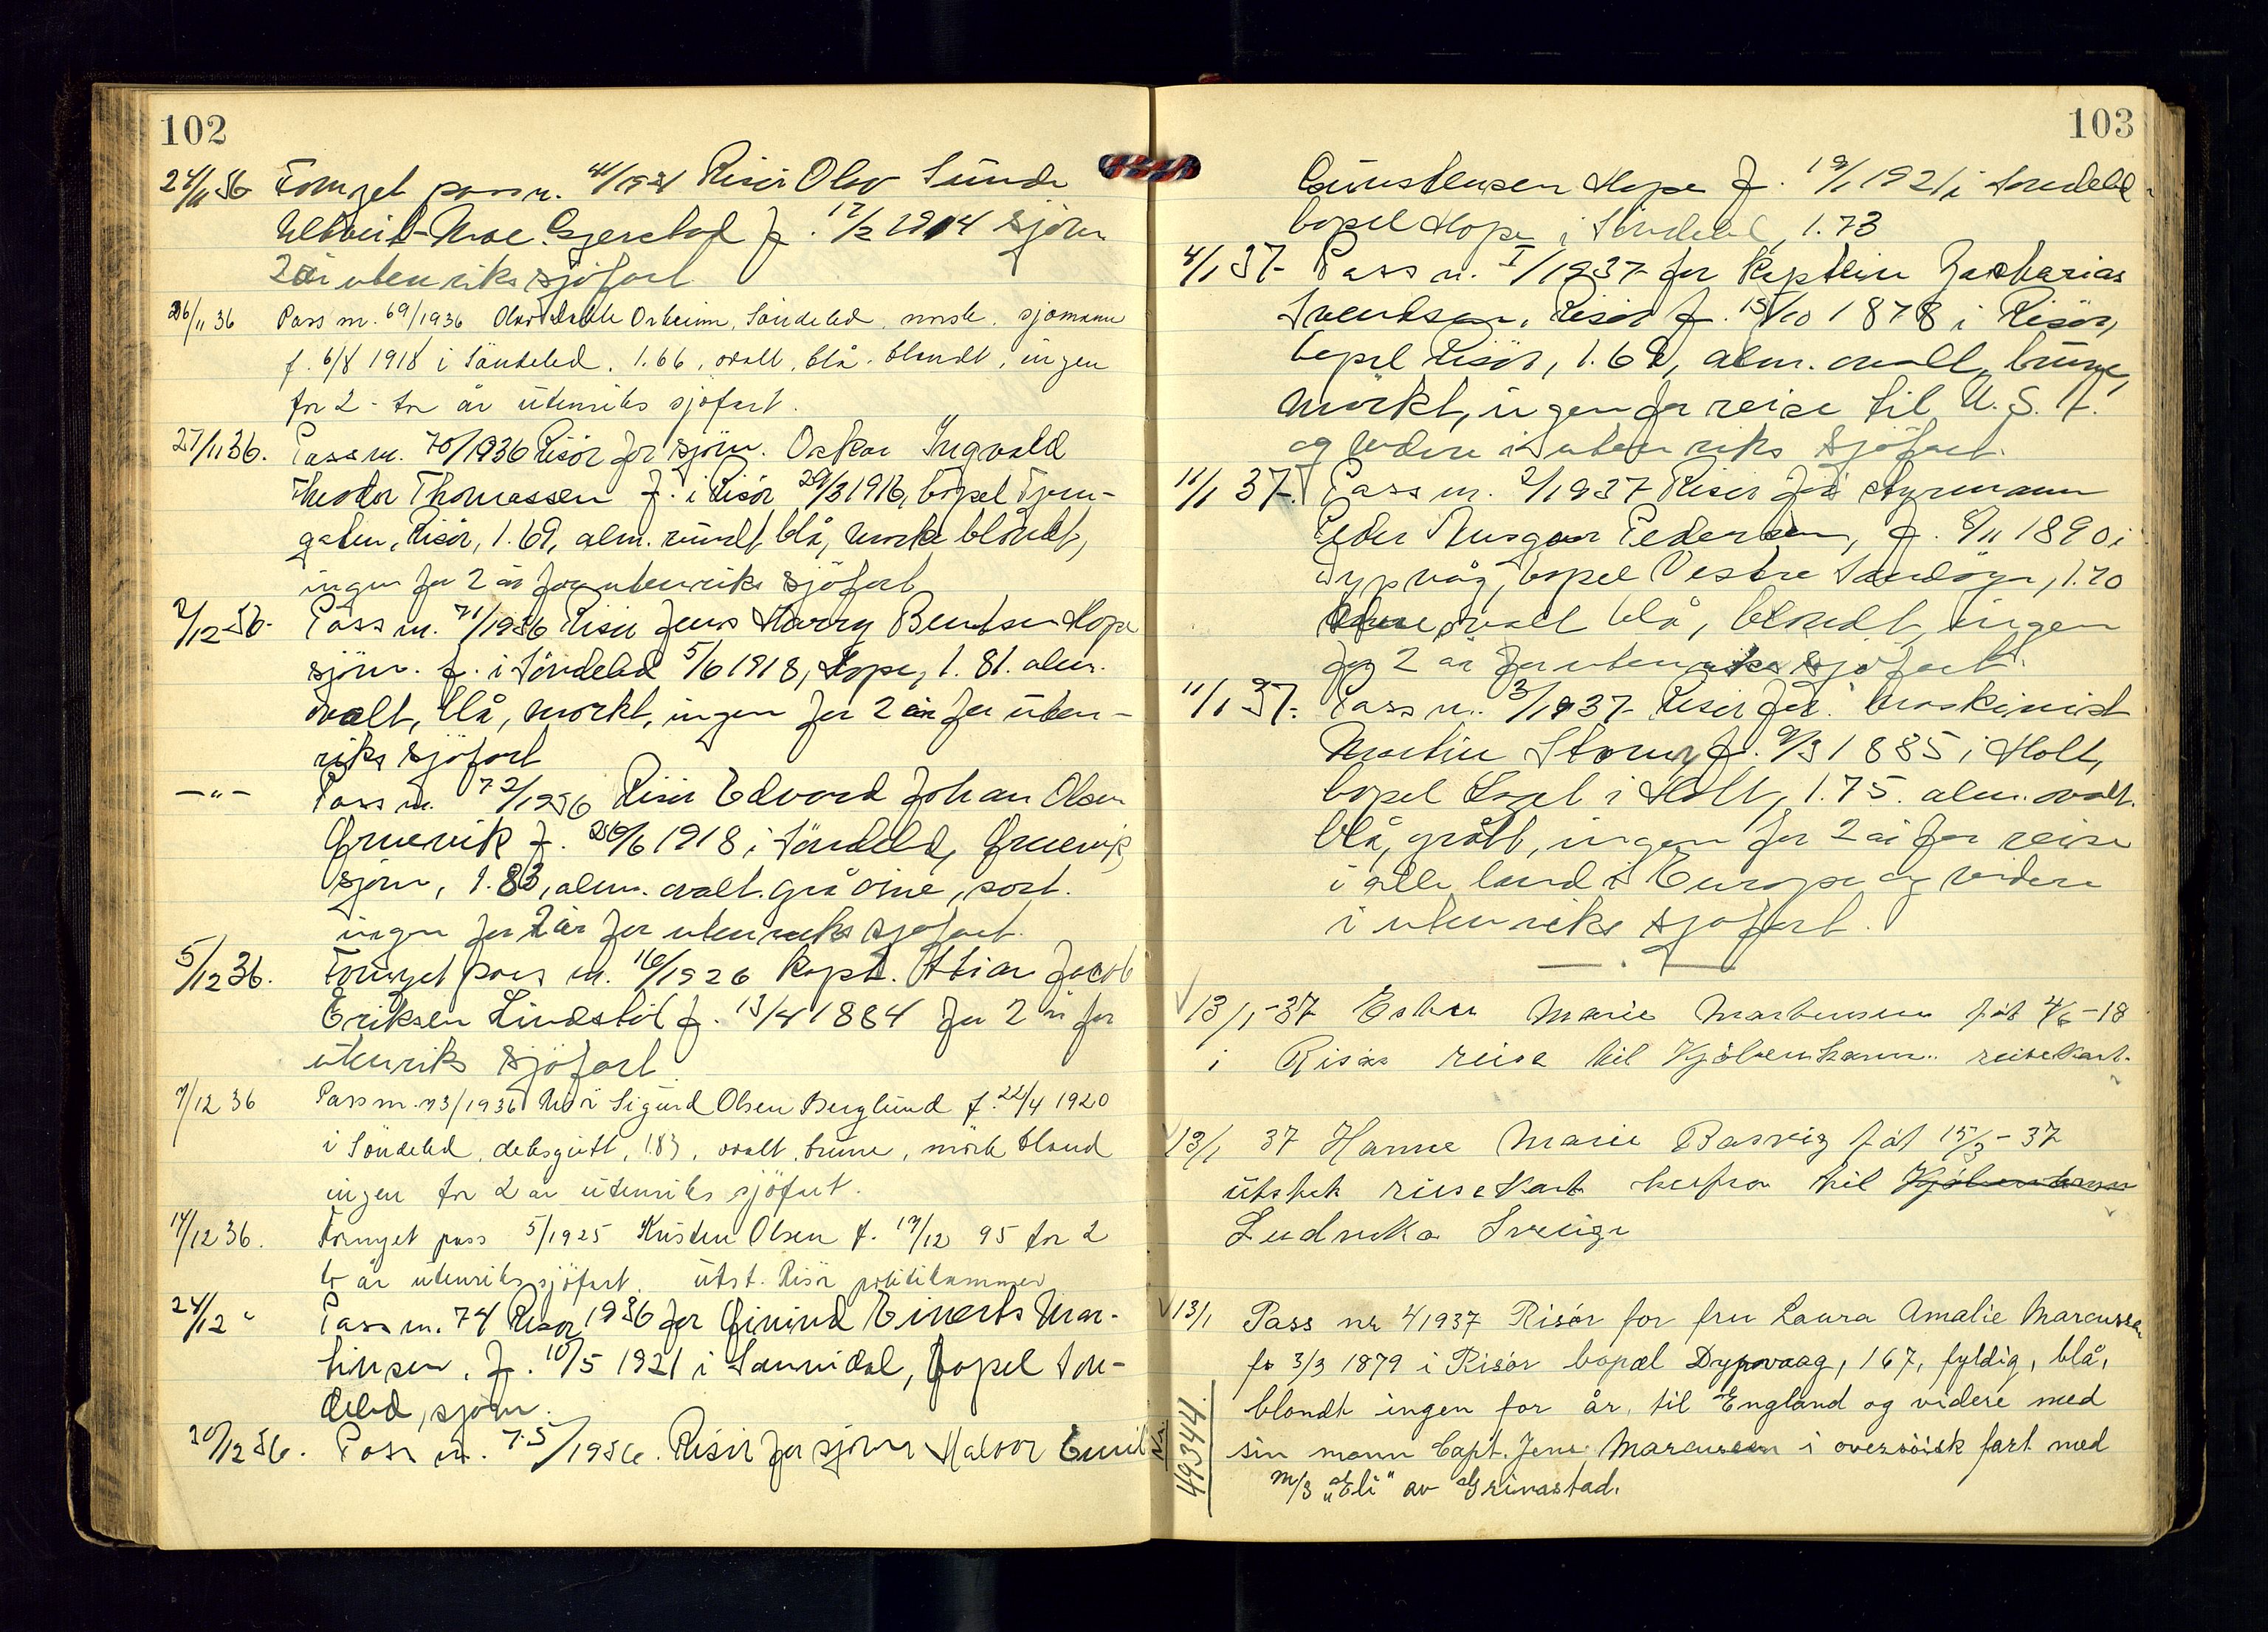 102
24/11 36 Fornyet pass nr. 41/1931 Risör Olav Sunde
Moe Gjerstad f. 17/2 1914 sjöm
2 år utenriks sjöfart
26/11 36 Pass nr. 69/1936 Olav Söndeled, norsk, sjömann
f. 6/8 1918 i Söndeled. 1.66, ovalt, blå, blondt, ingen
for 2 - to år utenriks sjöfart.
27/11 36. Pass nr. 70/1936 Risör for sjöm. Oskar Ingvald
Theodor Thomassen f. i Risör 29/3 1916, bopel Tjen-
gaten, Risör, 1.69, alm. rundt, blå, mörk blondt,
ingen for 2 år for utenriks sjöfart
2/12 36. Pass nr. 71/1936 Risör Jens Harry Bentsen Hope
sjöm. f. i Söndeled 5/6 1918, Hope, 1.81. alm.
ovalt, blå, mörkt, ingen for 2 år for uten-
riks sjöfart
—"— Pass nr. 72/1936 Risör Edvard Johan Olsen
f. 26/6 1918 i Söndeled,
sjöm, 1.83, alm. ovalt. grå öine, sort.
ingen for 2 år for utenriks sjöfart.
5/12 36. Fornyet pass nr. 16/1926 kapt. Jacob
Eriksen Lindstöl f. 13/4 1884 for 2 år for
utenriks sjöfart
7/12 36 Pass nr. 73/1936 Sigurd Olsen Berglund f. 22/4 1920
i Söndeled, deksgutt, 183, ovalt, brune, mörk blond
ingen for 2 år utenriks sjöfart.
14/12 36. Fornyet pass 5/1925 Kristen Olsen f. 19/12 95 for 2
to år utenriks sjöfart. utst. Risör politikammer
24/12 " Pass nr. 74 Risör 1936 for Einerts Mar-
tinsen. f. 10/5 1921 i Sannidal, bopel Sön-
deled, sjöm.
30/12 36. Pass nr. 75/1936. Risör for sjöm Halvor Emil
103
Gunstensen Hope f. 19/1 1921 i Söndeled
bopel Hope i Söndeled, 1.73
4/1 37- Pass nr. 1/1937 for Kaptein Zacharias
Svendsen, Risör f. 15/10 1878 i Risör,
bopel Risör, 1.62, alm. ovalt, brune,
mörkt, ingen for reise til U.S.A.
og videre i utenriks sjöfart.
11/1 37. Pass nr. 2/1937 Risör for styrmann
Peder Ansgar Pedersen, f. 8/11 1890 i
Dypvåg, bopel Vestre Sandöya, 1.70
ovalt blå, blondt, ingen
for 2 år for utenriks sjöfart.
11/1 37. Pass nr. 3/1937 Risör for maskinist
Martin Storm f. 9/3 1885 i Holt,
bopel i Holt, 1.75. alm. ovalt.
blå, grått, ingen for 2 år for reise
i alle land i Europa og videre
i utenriks sjöfart.
13/1 -37 Ester Marie Martensen föt 4/6 -18
i Risör reise til Kjöbenhavn. reisekort.
13/1 37 Hanne Marie Basvig föt 15/3 - 37
utstek reisekort herfra til Kjöbenhavn
Ludvika Sverige
13/1 Pass nr 4 1937 Risör for fru Laura Amalie Marcussen
fø 3/3 1879 i Risör bopæl Dypvaag, 167, fyldig, blå,
blondt ingen for år, til England og videre med
sin mann Capt. Jens Marcussen i oversöisk fart med
M/S "Eli" av Grimastad.
Nr. 49344.